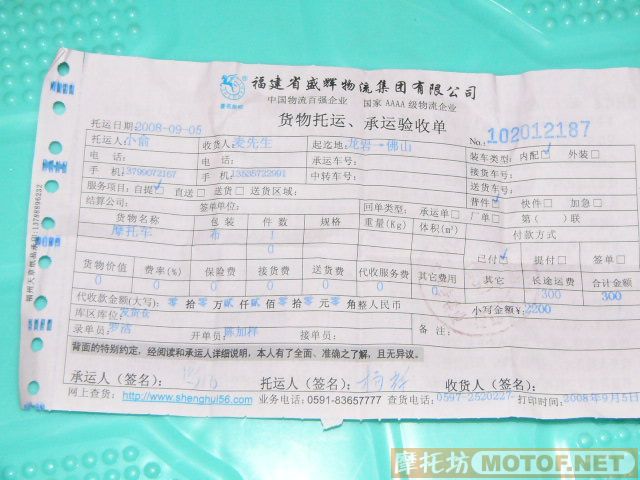 福建省盛辉物流集团有限公司
中国物流百强企业 国家AAAA级物流企业
货物托运、承运验收单
托运日期2008-09-05 No.: 102012187
托运人:小俞 收货人:麦先生 起迄地:龙岩-佛山 装车类型:内配 外装
电话: 电话: 承运车号: 接货车号:
手机 手机13535722991 中转车号: 送货车号:
服务项目:自提 直送 送货 送货区域: 普件 快件 加急
结算公司: 签单单位: 回单类型: 承运单 厂单 第( )联
货物名称 包装 件数 规格 重量(Kg) 体积(m³) 付款方式
摩托车 布 1
0 已付 提付 签单
货物价值 费率(%) 保险费 接货费 送货费 代收服务费 其它费用 其它 长途运费 合计
0 0 0 0 0 0 0 300 300
代收款金额(大写): 零拾零万贰仟贰佰零拾零元零角整人民币 小写金额¥:2200
库区库位:发货仓
录单员:罗洁 开单员:陈加祥 接单员: 备注:
背面的特别约定,经阅读和承运人详细说明,本人有了全面、准确之了解,且无异议。
承运人(签名): 托运人(签名): 收货人(签名):
网上查货: http://www.shenghui56.com 业务电话:0591-83657777 查货电话:0597-2520227 打印时间:2008年9月5日
福州天章纸品承印:13788896232
摩托坊 MOTOF.NET